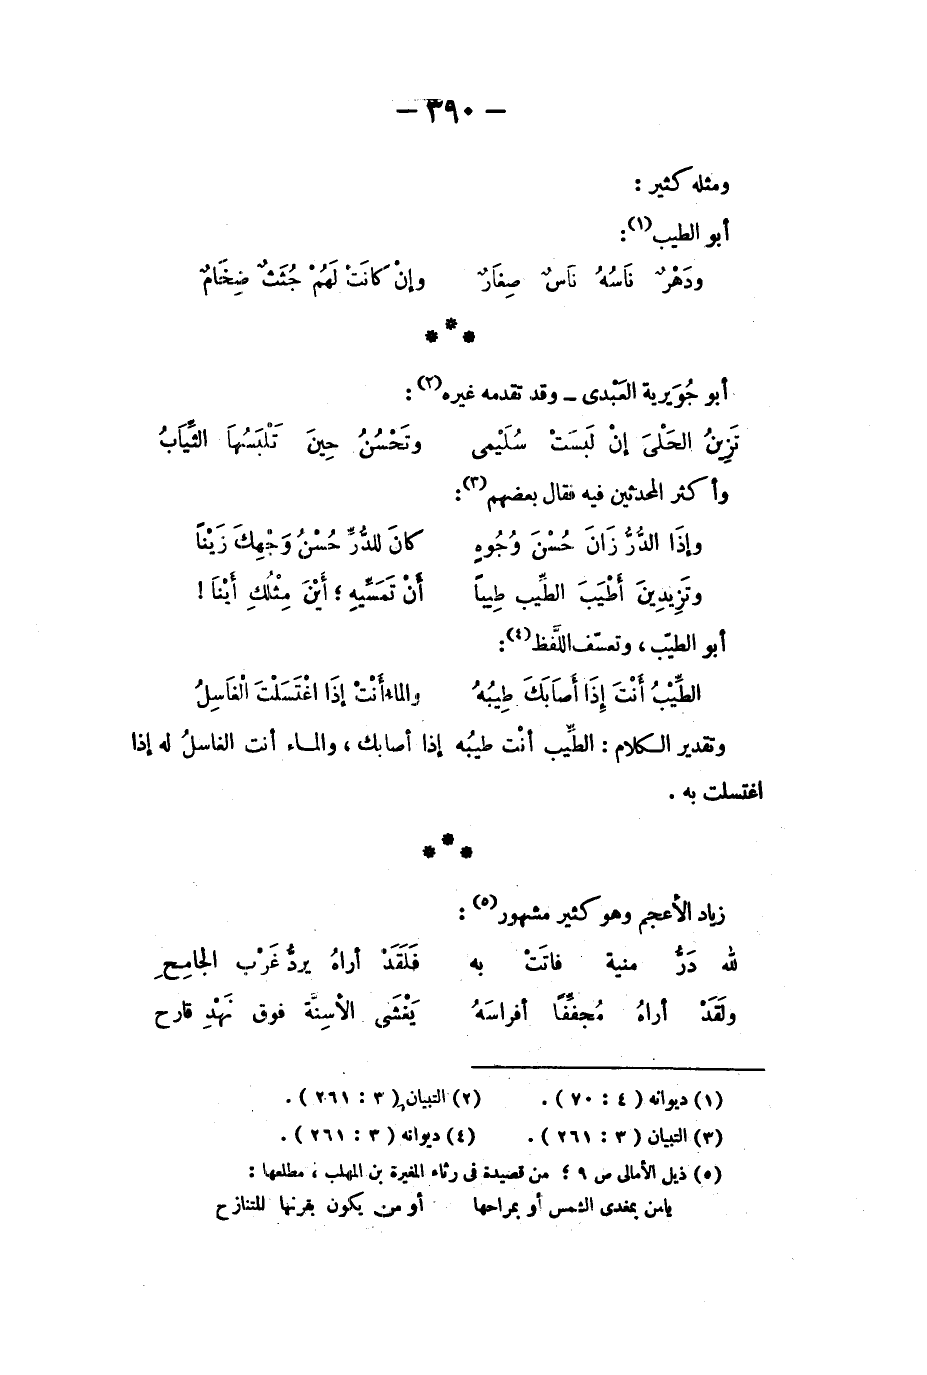 — ٣٩٠ —
ومثله كثير :
أبو الطيب(١):
ودَهْرٌ نَاسُهُ نَاسٌ صِغَارٌ وإنْ كانَتْ لَهُمْ جُثَثٌ ضِخَامٌ
* * *
أبو جُوَيرية العَبْدى – وقد تقدمه غيره(٢):
تَزِينُ الحَلْىَ إنْ لَبَسَتْ سُلَيْمى وتَحْسُنُ حِينَ تَلْبَسُهَا الثِّيَابُ
وأكثر المحدثين فيه فقال بعضهم(٣):
وإذَا الدُّرُّ زَانَ حُسْنَ وُجُوهٍ كانَ للدُّرِّ حُسْنُ وَجْهِكَ زَيْناً
وتَزِيدِينَ أَطْيَبَ الطِّيب طِيباً أَنْ تَمَسِّيهِ ؛ أَيْنَ مِثْلُكِ أَيْنَا !
أبو الطيّب ، وتعسّف اللَّفظ(٤):
الطِّيْبُ أَنْتَ إِذَا أَصَابَكَ طِيبُهُ والماء أَنْتْ إذَا اغْتَسَلْتَ الْغَاسِلُ
وتقدير الكلام : الطِّيب أنْت طيبُه إذا أصابك ، والماء أنت الغاسلُ له إذا
اغتسلت به .
* * *
زياد الأعجم وهو كثير مشهور(٥) :
لله دَرُّ منية فاتَتْ به فَلَقَدْ أراهُ يردُّ غَرْب الجامحِ
ولَقَدْ أراهُ مُجفِّفًا أفراسَهُ يَغْشَى الأسِنَّة فوق نَهْدِ قارح
(١) ديوانه ( ٤ : ٧٠ ) . (٢) التبيان ( ٣ : ٢٦١ ) .
(٣) التبيان ( ٣ : ٢٦١ ) . (٤) ديوانه ( ٣ : ٢٦١ ) .
(٥) ذيل الأمالى ص ٩ ؛ من قصيدة فى رثاء المغيرة بن المهلب ، مطلعها :
يامن بمغدى الشمس أو بمراحها أو من يكون بقرنها المتنازح